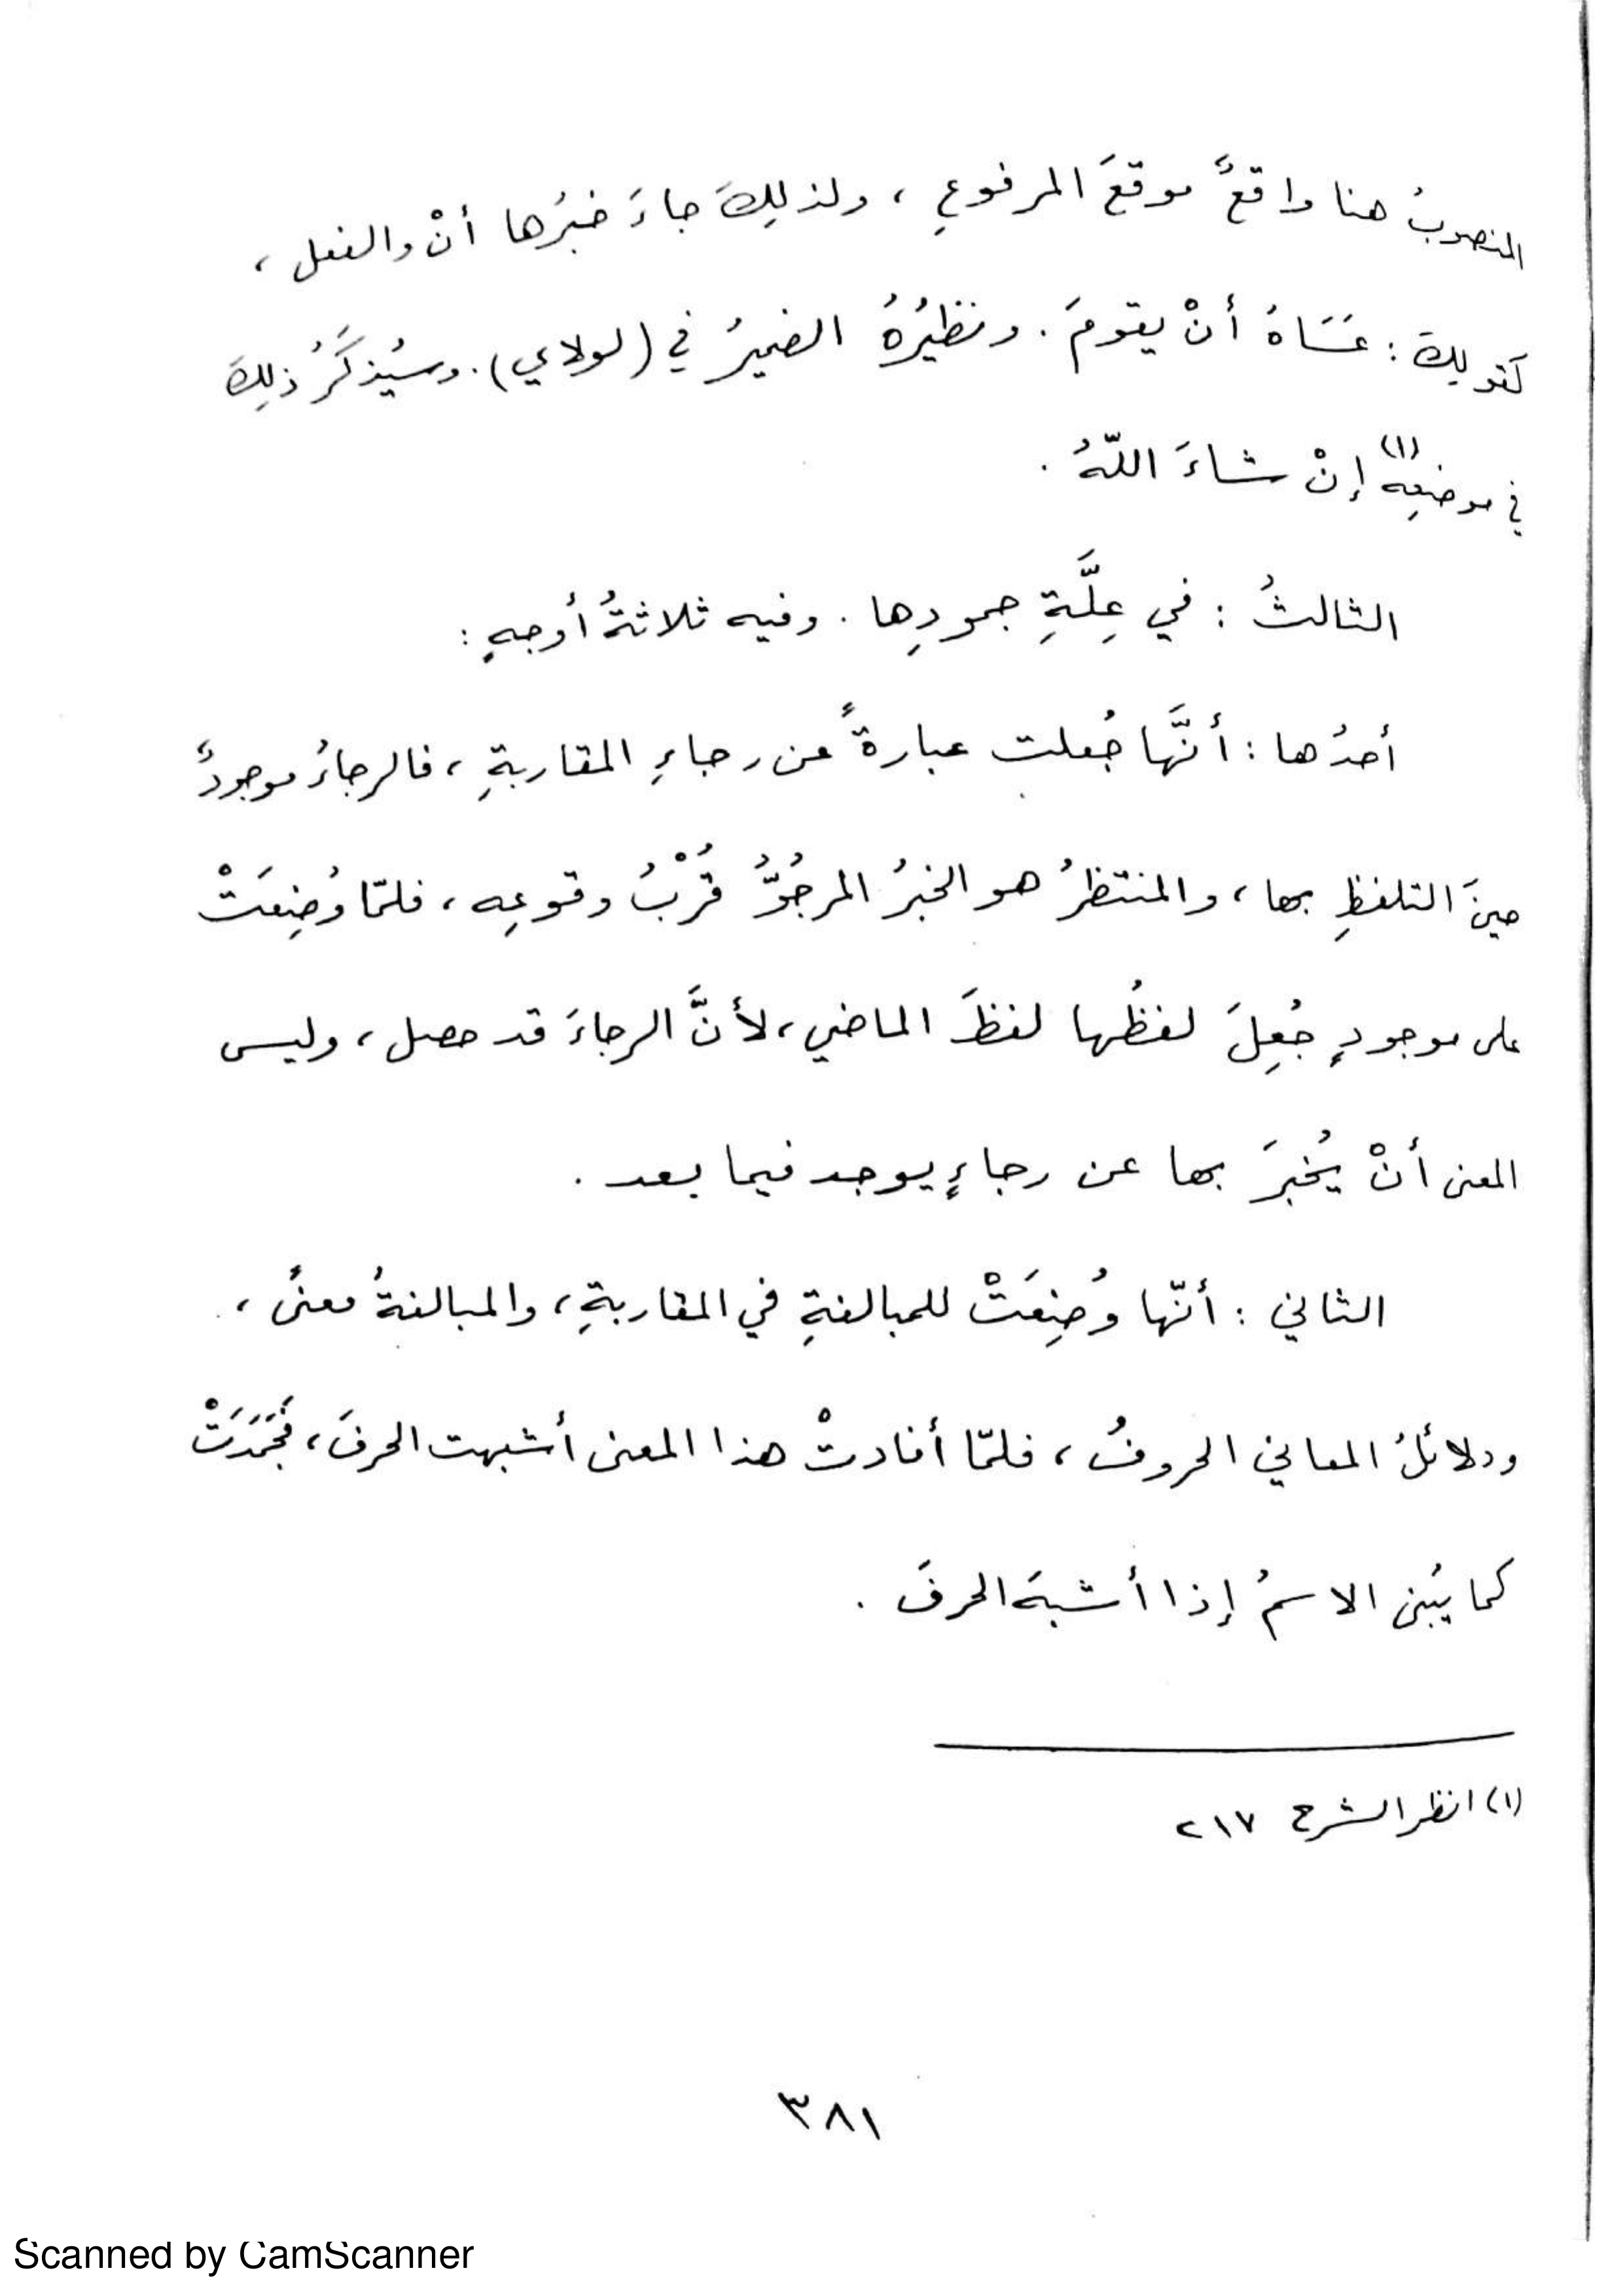 المنصوبُ هنا واقعٌ موقعَ المرفوعِ ، ولذلِكَ جاءَ خبرُها أنْ والفعل ،
كقولِكَ : عَسَاهُ أنْ يقومَ . ونظيرُهُ الضميرُ في (لولاي) . وسيُذكَرُ ذلِكَ
في موضِعِه (١) إنْ شاءَ اللّهُ .
الثالثُ : في عِلَّةِ جمودِها . وفيه ثلاثةُ أوجهٍ :
أحدُها : أنَّها جُعلت عبارةً عن رجاءِ المقاربةِ ، فالرجاءُ موجودٌ
حينَ التلفظِ بها ، والمنتظرُ هو الخبرُ المرجُوُّ قُرْبُ وقوعِه ، فلمّا وُضِعَتْ
على موجودٍ جُعِلَ لفظُها لفظَ الماضي ، لأنَّ الرجاءَ قد حصل ، وليس
المعنى أنْ يُخبرَ بها عن رجاءٍ يوجد فيما بعد .
الثاني : أنّها وُضِعَتْ للمبالغةِ في المقاربةِ ، والمبالغةُ معنىً ،
ودلائلُ المعاني الحروفُ ، فلمّا أفادتْ هذا المعنى أشبهت الحرفَ ، فجَمَدَتْ
كما يُبنى الاسمُ إذا أشبهَ الحرفَ .
(١) انظر الشرح ٢١٧
٣٨١
Scanned by CamScanner